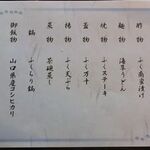 酢物
ふく南蛮漬け
麺物
海草うどん
焼物
ふくステーキ
蓋物
ふく万十
揚物
ふく天ぷら
茶碗蒸し
鍋
ふくちり鍋
御飯物
山口県産コシヒカリ